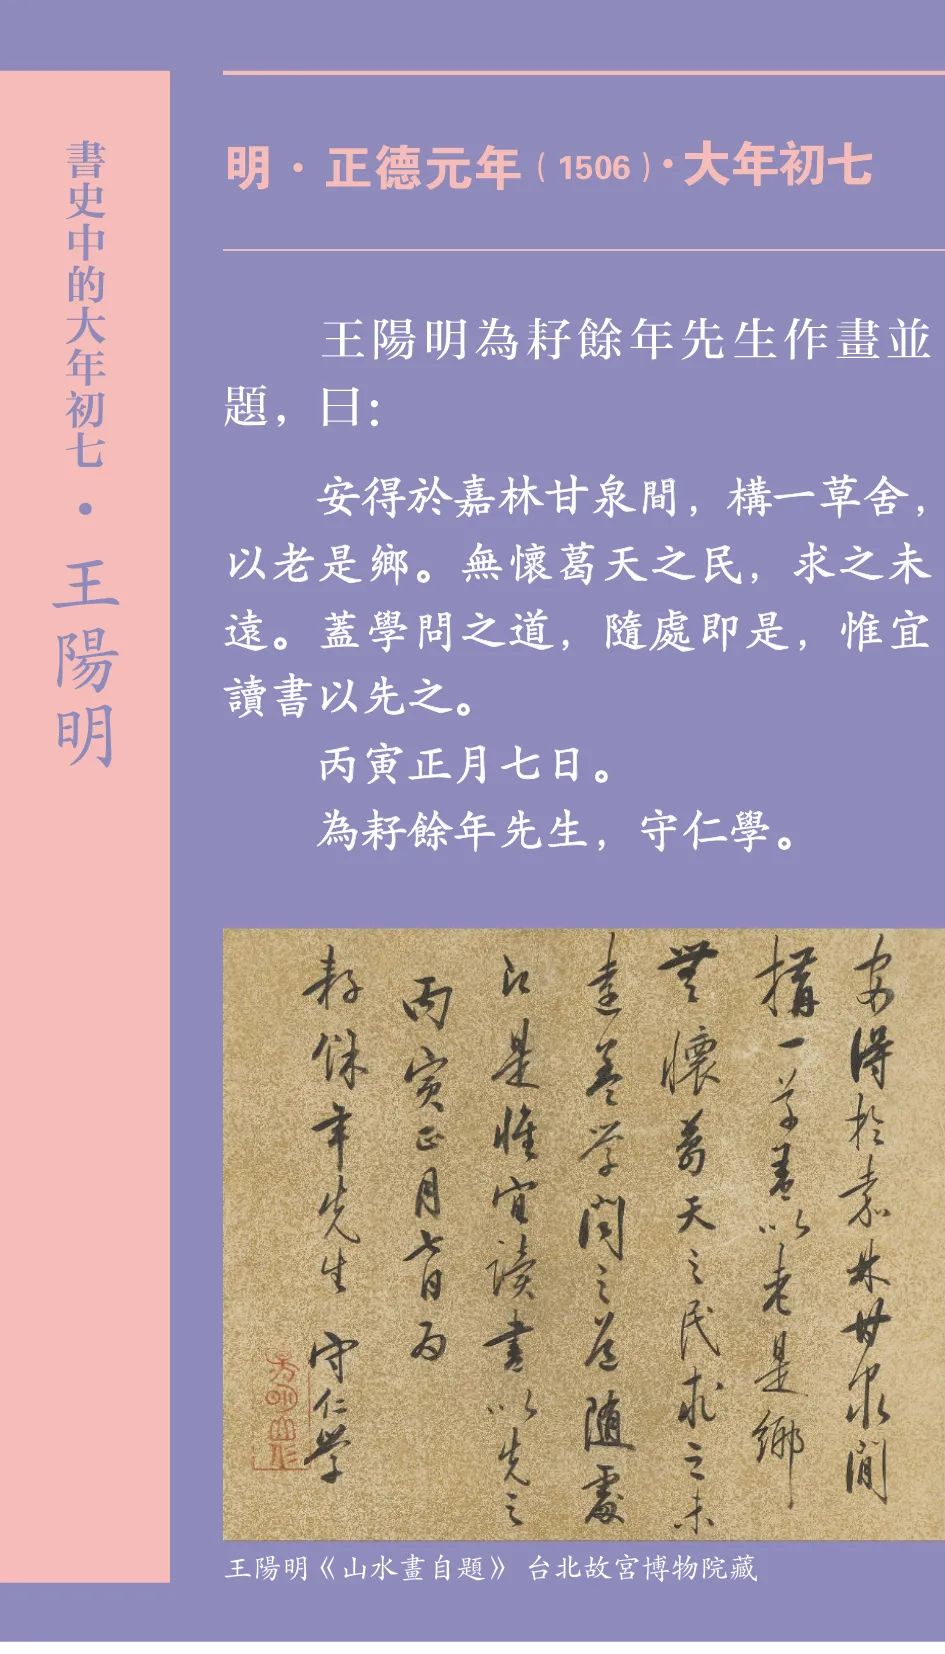 書史中的大年初七·王陽明
明·正德元年（1506）·大年初七
王陽明為耔餘年先生作畫並
題，曰：
安得於嘉林甘泉間，構一草舍，
以老是鄉。無懷葛天之民，求之未
遠。蓋學問之道，隨處即是，惟宜
讀書以先之。
丙寅正月七日。
為耔餘年先生，守仁學。
安得於嘉林甘泉間
構一草舍以老是鄉
無懷葛天之民求之未
遠蓋学問之道随處
即是惟宜读書以先之
丙寅正月七日為
耔餘年先生 守仁学
王陽明《山水畫自題》 台北故宮博物院藏